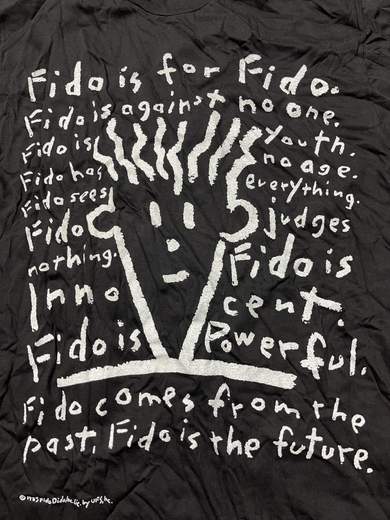 Fido is for Fido.
Fido is against no one.
Fido is Youth.
Fido has no age.
Fido sees everything.
Fido judges
nothing. Fido is
Inno cent.
Fido is Powerful.
Fido comes from the
past, Fido is the future.